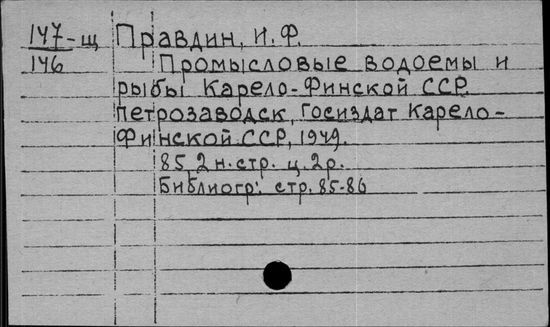 147-щ Правдин, И.Ф.
146 Промысловые водоемы и
рыбы Карело-Финской ССР.
Петрозаводск, Госиздат Карело-
Финской ССР, 1949.
85, 2 н.стр. ц. 2р.
Библиогр: стр. 85-86